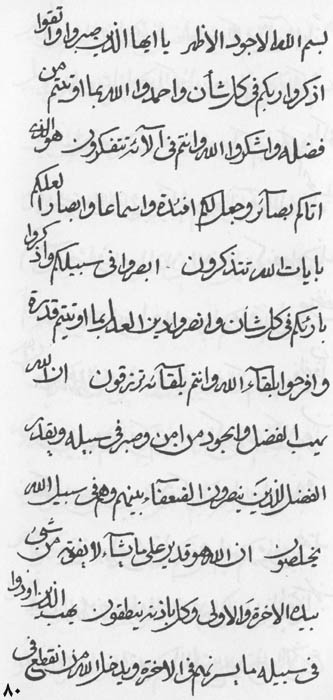 بسم الله الاجود الاظهر يا ايها الذين صبروا واتقوا
اذكروا ربكم فى كل شأن واحمدوا الله بما اوتيتم من
فضله واشكروا الله وانتم فى آلائه تتفكرون هو الذى
اتاكم بصآئر وجعل لكم افئدة واسماعا وابصارا لعلكم
بايات الله تتذكرون ابصروا فى سبيلكم واذكروا
بارئكم فى كل شأن وانصروا دين العدل بما اوتيتم قدرة
وافرحوا بلقآء الله وانتم بلقآئه ترزقون ان الله
يهب الفضل والجود من امن وصبر فى سبيله ويقدر
الفضل للذين ينصرون الضعفآء بينهم وهم فى سبيل الله
يخلصون ان الله هو قدير على ما يشآء لا يفوته من شىء
بيده الاخرة والاولى وكل باذنه ينطقون يهب الذين اوذوا
فى سبيله ما يسرنهم فى الاخرة ويدخل الله من انقطع فى
٨٠